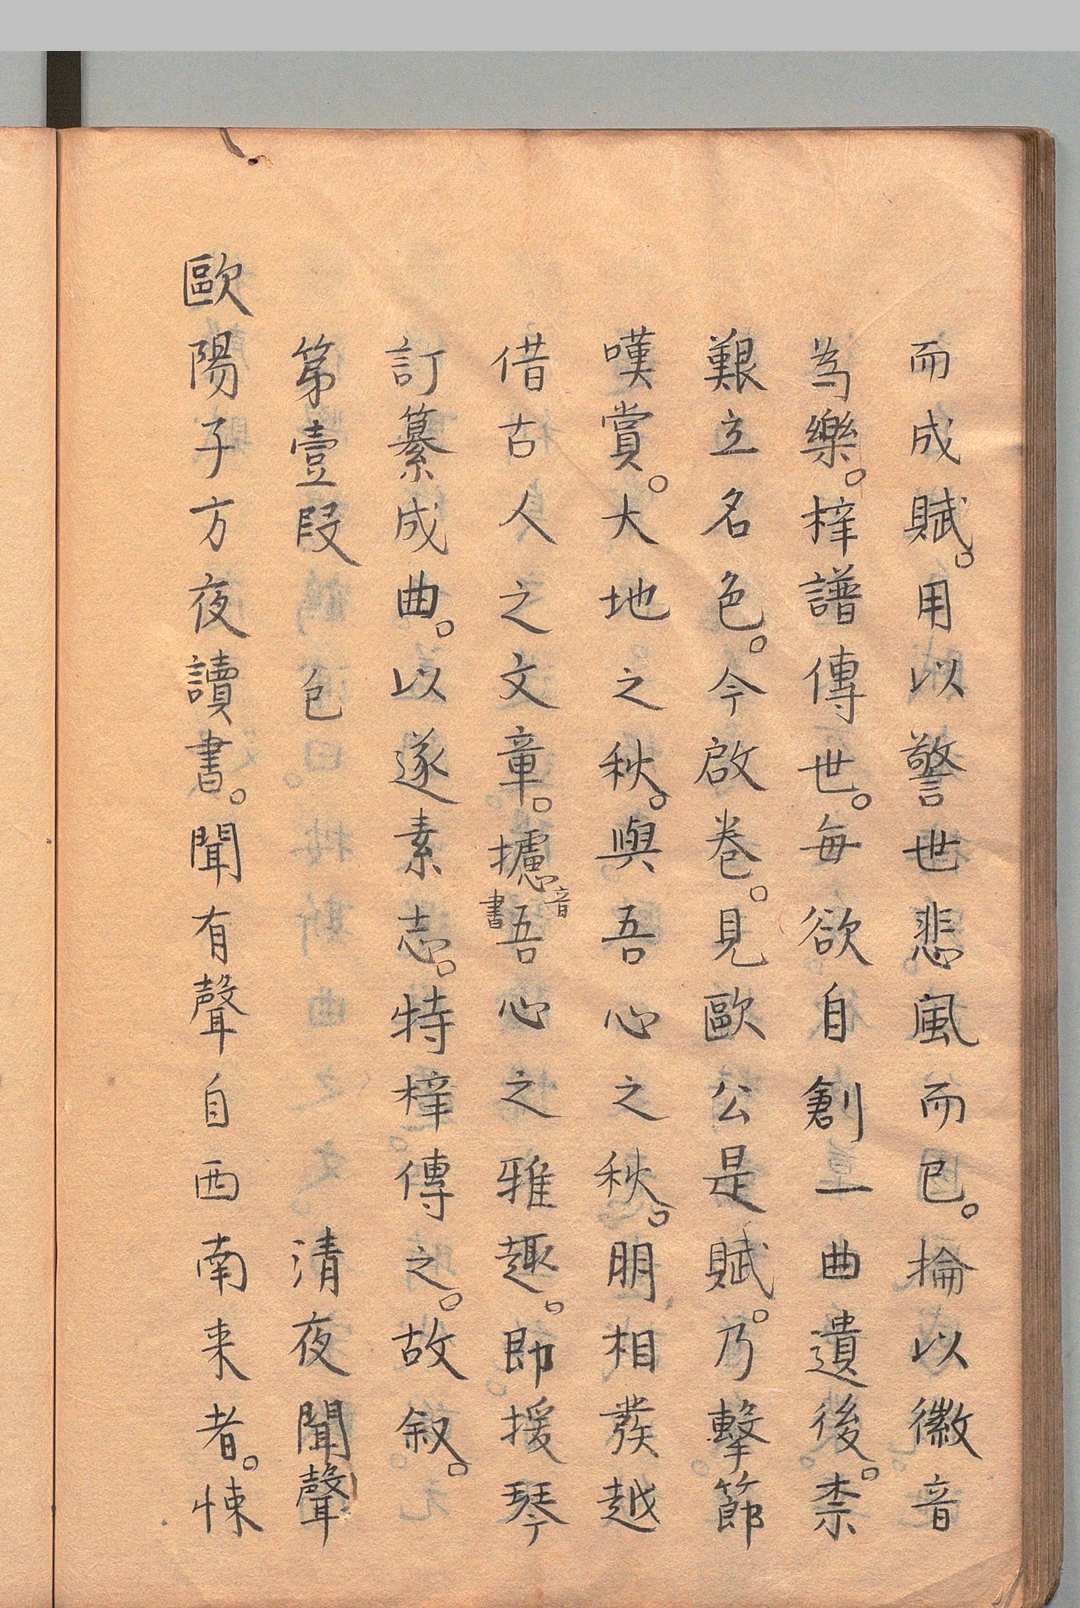 而成賦。用以警世悲風而已。掄以徽音
為樂。梓譜傳世。每欲自創一曲遺後。柰
艱立名色。今啟卷。見歐公是賦。乃擊節
嘆賞。大地之秋。與吾心之秋。朋相發越
借古人之文章。攄音書吾心之雅趣。即援琴
訂纂成曲。以遂素志。特梓傳之。故叙。
第壹段 色 清夜聞聲
歐陽子方夜讀書。聞有聲自西南来者。悚